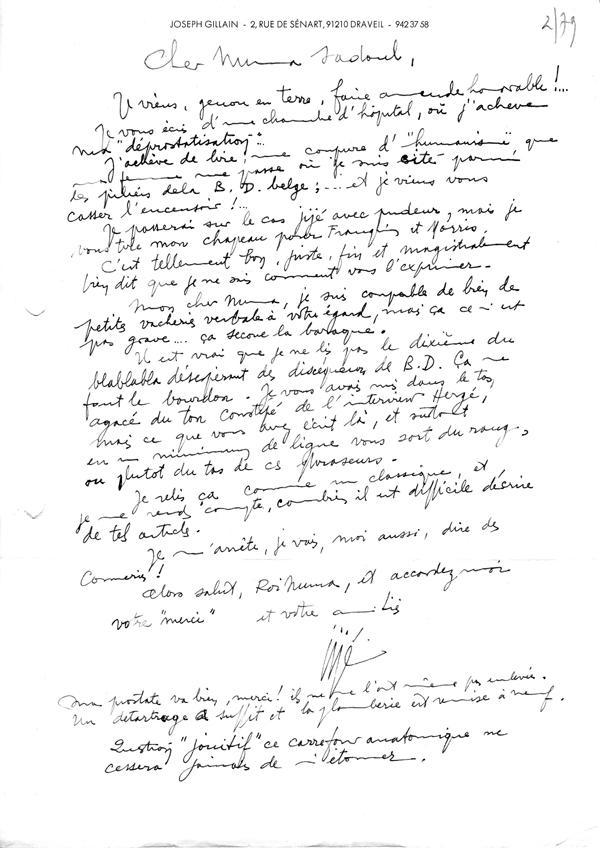 JOSEPH GILLAIN - 2, RUE DE SÉNART, 91210 DRAVEIL - 942 37 58
2/79
Cher Numa Sadoul,
Je viens, genou en terre, faire amende honorable !...
Je vous écris d'une chambre d'hôpital, où j'achève
ma "déprostatisation"...
J'achève de lire une coupure d'"humanisme", que
ma femme me passe où je suis cité parmi
les piliers de la B.D. belge ; ... et je viens vous
casser l'encensoir !...
Je passerai sur le cas Jijé avec pudeur, mais je
vous tire mon chapeau pour Franquin et Morris.
C'est tellement bon, juste, fin et magistralement
bien dit que je ne sais comment vous l'exprimer.
Mon cher Numa, je suis coupable de bien de
petites vacheries verbales à votre égard, mais ça ce n'est
pas grave.... ça secoue la baraque.
Il est vrai que je ne lis pas le dixième du
blablabla désespérant des disséqueurs de B.D. Ça me
fout le bourdon. Je vous avais mis dans le tas,
agacé du ton constipé de l'interview Hergé,
mais ce que vous avez écrit là, et surtout
en un minimum de ligne vous sort du rang,
ou plutot du tas de ces phraseurs.
Je relis ça comme un classique, et
je me rends compte, combien il est difficile d'écrire
de tels articles.
Je m'arrête, je vais, moi aussi, dire des
Conneries !
Alors salut, Roi Numa, et accordez moi
votre "merci" et votre amitié
Jijé
Ma prostate va bien, merci ! ils ne me l'ont même pas enlevée.
Un détartrage a suffit et la plomberie est remise à neuf.
Question "jouitif" ce carrefour anatomique ne
cessera jamais de m'étonner.